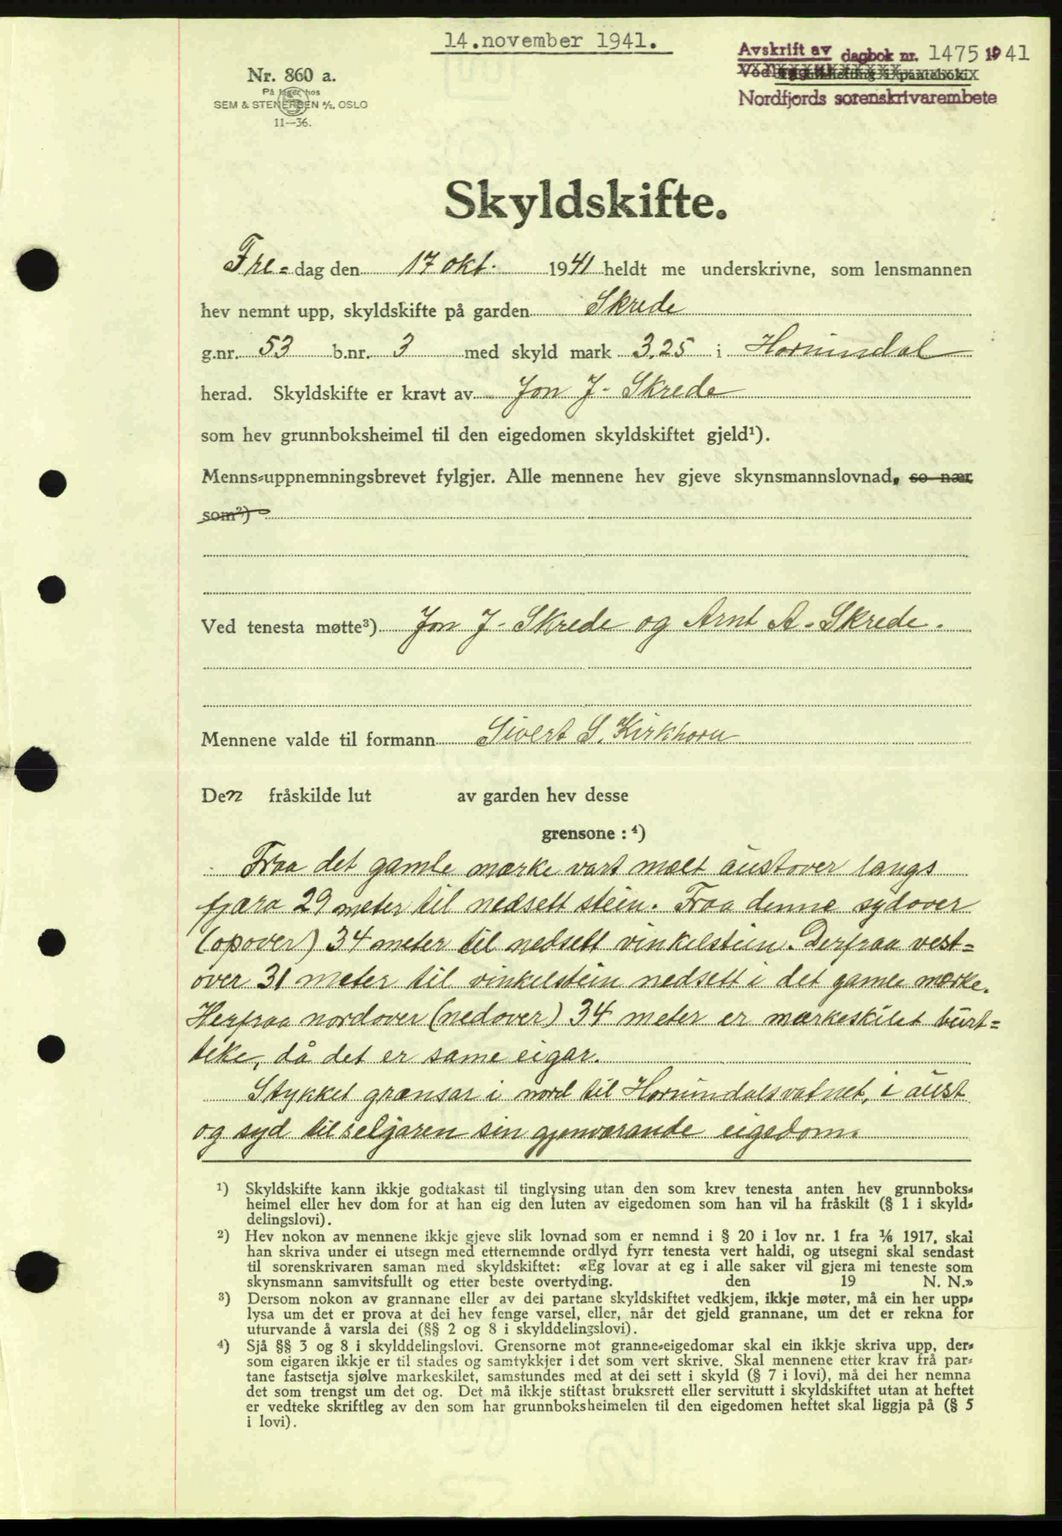 14. november 1941.
Avskrift av dagbok nr. 1475 1941
Nordfjords sorenskrivarembete
Nr. 860 a.
På lager hos
SEM & STENERSEN A/S, OSLO
11—36.
Skyldskifte.
Fre-dag den 17 okt. 1941 heldt me underskrivne, som lensmannen
hev nemnt upp, skyldskifte på garden Skrede
g.nr. 53 b.nr. 3 med skyld mark 3.25 i Hornindal
herad. Skyldskifte er kravt av Jon J. Skrede
som hev grunnboksheimel til den eigedomen skyldskiftet gjeld¹).
Menns-uppnemningsbrevet fylgjer. Alle mennene hev gjeve skynsmannslovnad, so nær
som²)
Ved tenesta møtte³) Jon J. Skrede og Arnt A. Skrede.
Mennene valde til formann Sivert S. Kirkhorn
Den fråskilde lut av garden hev desse
grensone : ⁴)
Fraa det gamle mærke vart mælt austover langs
fjæra 29 meter til nedsett stein. Fraa denne sydover
(opover) 34 meter til nedsett vinkelstein. Derfraa vest-
over 31 meter til vinkelstein nedsett i det gamle mærke.
Herfraa nordover (nedover) 34 meter er mærkeskilet burt-
teke, då det er same eigar.
Stykket grænsar i nord til Hornindalsvatnet, i aust
og syd til seljaren sin gjenværande eigedom.
¹) Skyldskifte kann ikkje godtakast til tinglysing utan den som krev tenesta anten hev grunnboks-
heimel eller hev dom for at han eig den luten av eigedomen som han vil ha fråskilt (§ 1 i skyld-
delingslovi).
²) Hev nokon av mennene ikkje gjeve slik lovnad som er nemnd i § 20 i lov nr. 1 fra 1/6 1917, skal
han skriva under ei utsegn med etternemnde ordlyd fyrr tenesta vert haldi, og utsegni skal sendast
til sorenskrivaren saman med skyldskiftet: «Eg lovar at eg i alle saker vil gjera mi teneste som
skynsmann samvitsfullt og etter beste overtyding. den 19 N. N.»
³) Dersom nokon av grannane eller av dei partane skyldskiftet vedkjem, ikkje møter, må ein her upp-
lysa um det er prova at dei hev fenge varsel, eller, når det gjeld grannane, um det er rekna for
uturvande å varsla dei (§§ 2 og 8 i skylddelingslovi).
⁴) Sjå §§ 3 og 8 i skylddelingslovi. Grensorne mot granne-eigedomar skal ein ikkje skriva upp, der-
som eigaren ikkje er til stades og samtykkjer i det som vert skrive. Skal mennene etter krav frå par-
tane fastsetja sjølve markeskilet, samstundes med at dei sett i skyld (§ 7 i lovi), må dei her nemna
det som trengst um det og. Det må ikkje stiftast bruksrett eller servitutt i skyldskiftet utan at heftet
er vedteke skriftleg av den som har grunnboksheimelen til den eigedomen heftet skal liggja på (§ 5
i lovi).